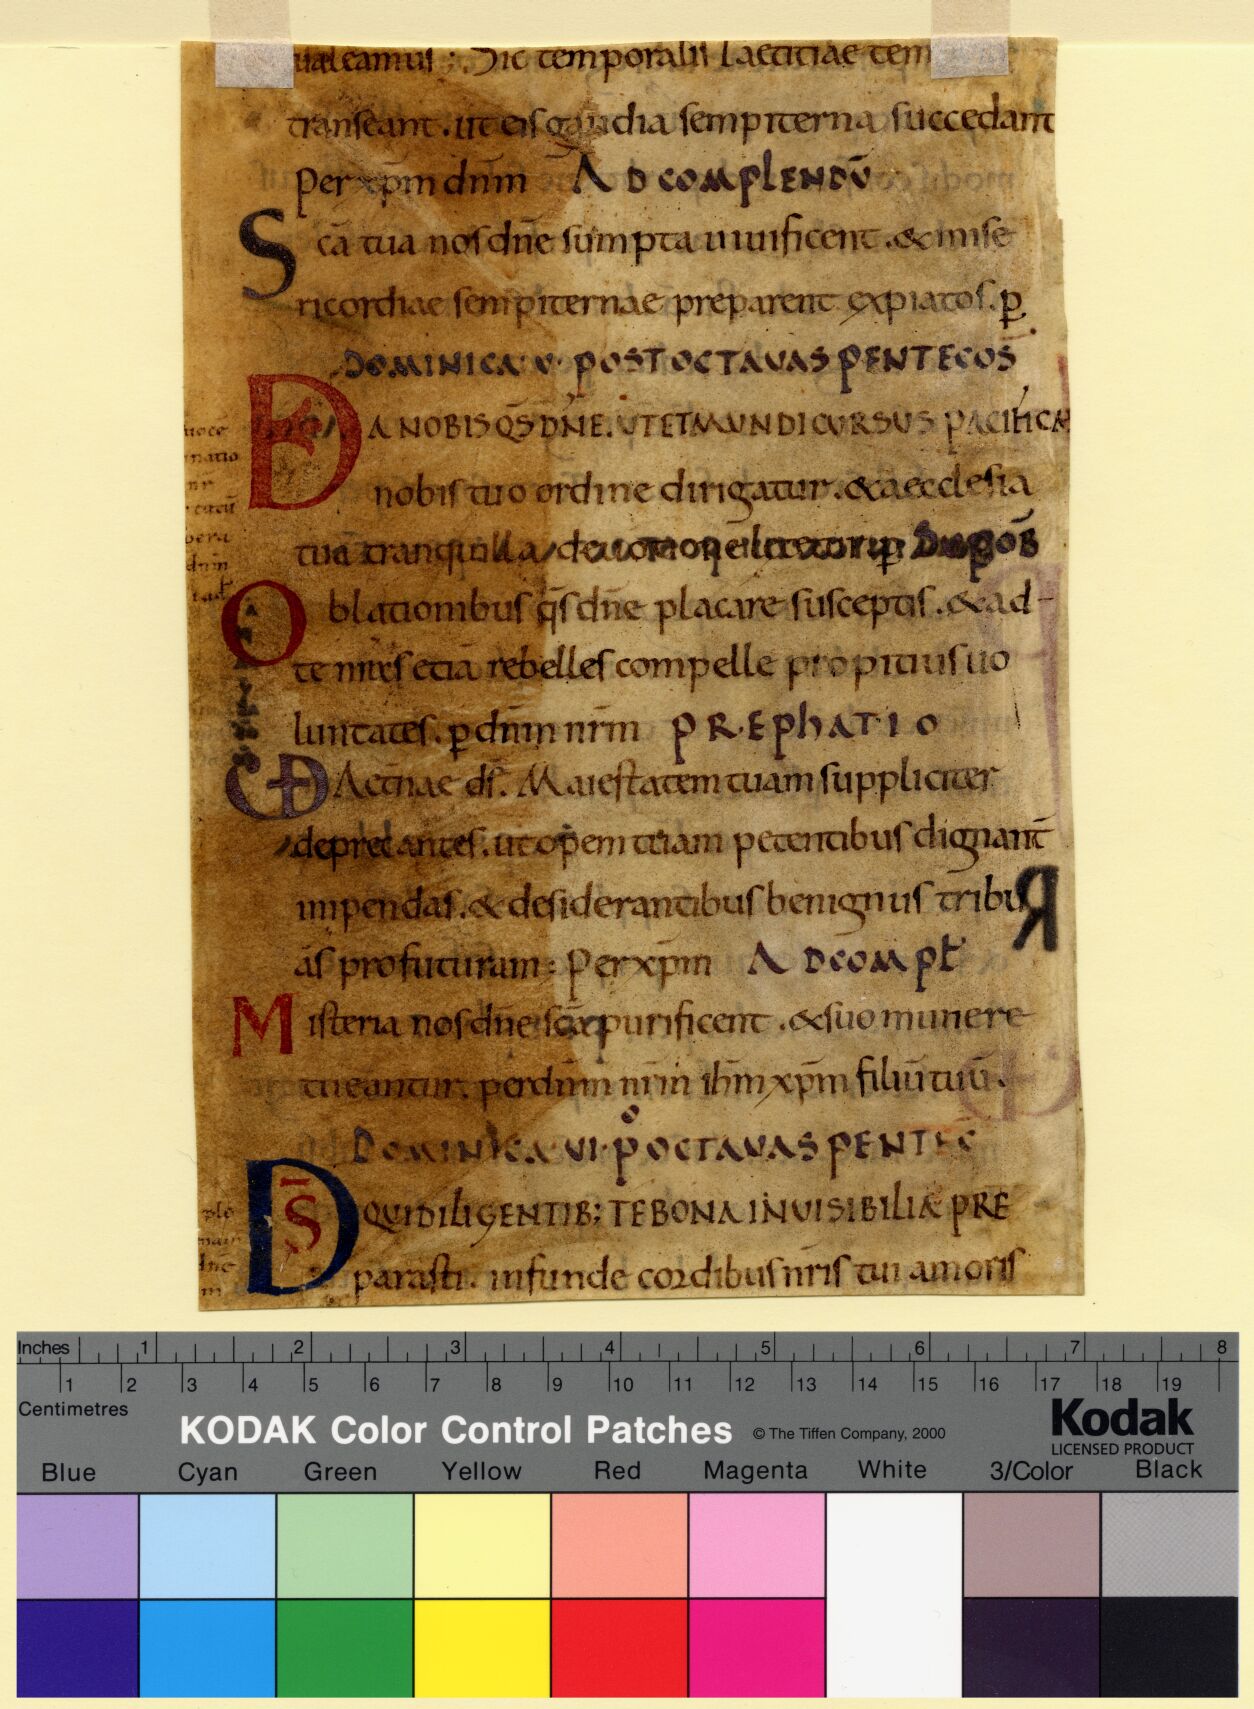 ualeamus ; Sic temporalis laetitiae tem
transeant . ut eis gaudia sempiterna succedant
Per xp̄m dn̄m AD COMPLENDŪ
Sc̄a tua nos dn̄e sumpta uiuificent . & mise
ricordiae sempiternae preparent expiatos . p̄
DOMINICA · V · POST OCTAVAS PENTECOS̄
DA NOBIS QS̄ DN̄E . UT ET MUNDI CURSUS PACIFICE
nobis tuo ordine dirigatur . & aecclesia
tua tranquilla deuotione
Oblationibus q̄s dn̄e placare susceptis . & ad
te nr̄as etiā rebelles compelle propitius uo
luntates . p̄ dn̄m nr̄m PREPHATIO
VD Aet̄nae ds̄ . Maiestatem tuam suppliciter
deprecantes . ut opem tuam petentibus dignant̄
impendas . & desiderantibus benignus tribu
R
as profuturam : Per xp̄m AD COMPL̄
Misteria nos dn̄e sc̄a purificent . & suo munere
tueantur . per dn̄m nr̄m ih̄m xp̄m filiū tuū .
DOMINICA · VI · Po OCTAVAS PENTEC̄
DS̄ QUI DILIGENTIB; TE BONA INVISIBILIA PRE
parasti . infunde cordibus nr̄is tui amoris
uoce
natio
nr̄
dn̄m
dn̄e
Inches 1 2 3 4 5 6 7 8
1 2 3 4 5 6 7 8 9 10 11 12 13 14 15 16 17 18 19
Centimetres
KODAK Color Control Patches © The Tiffen Company, 2000
Kodak
LICENSED PRODUCT
Blue Cyan Green Yellow Red Magenta White 3/Color Black